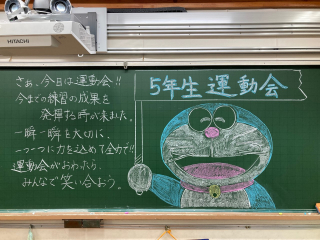 HITACHI
さぁ、今日は運動会!!
今までの練習の成果を
発揮する時が来ました。
一瞬一瞬を大切に、
一つ一つに力を込めて全力で!!
運動会がおわったら
みんなで笑い合おう。
5年生運動会